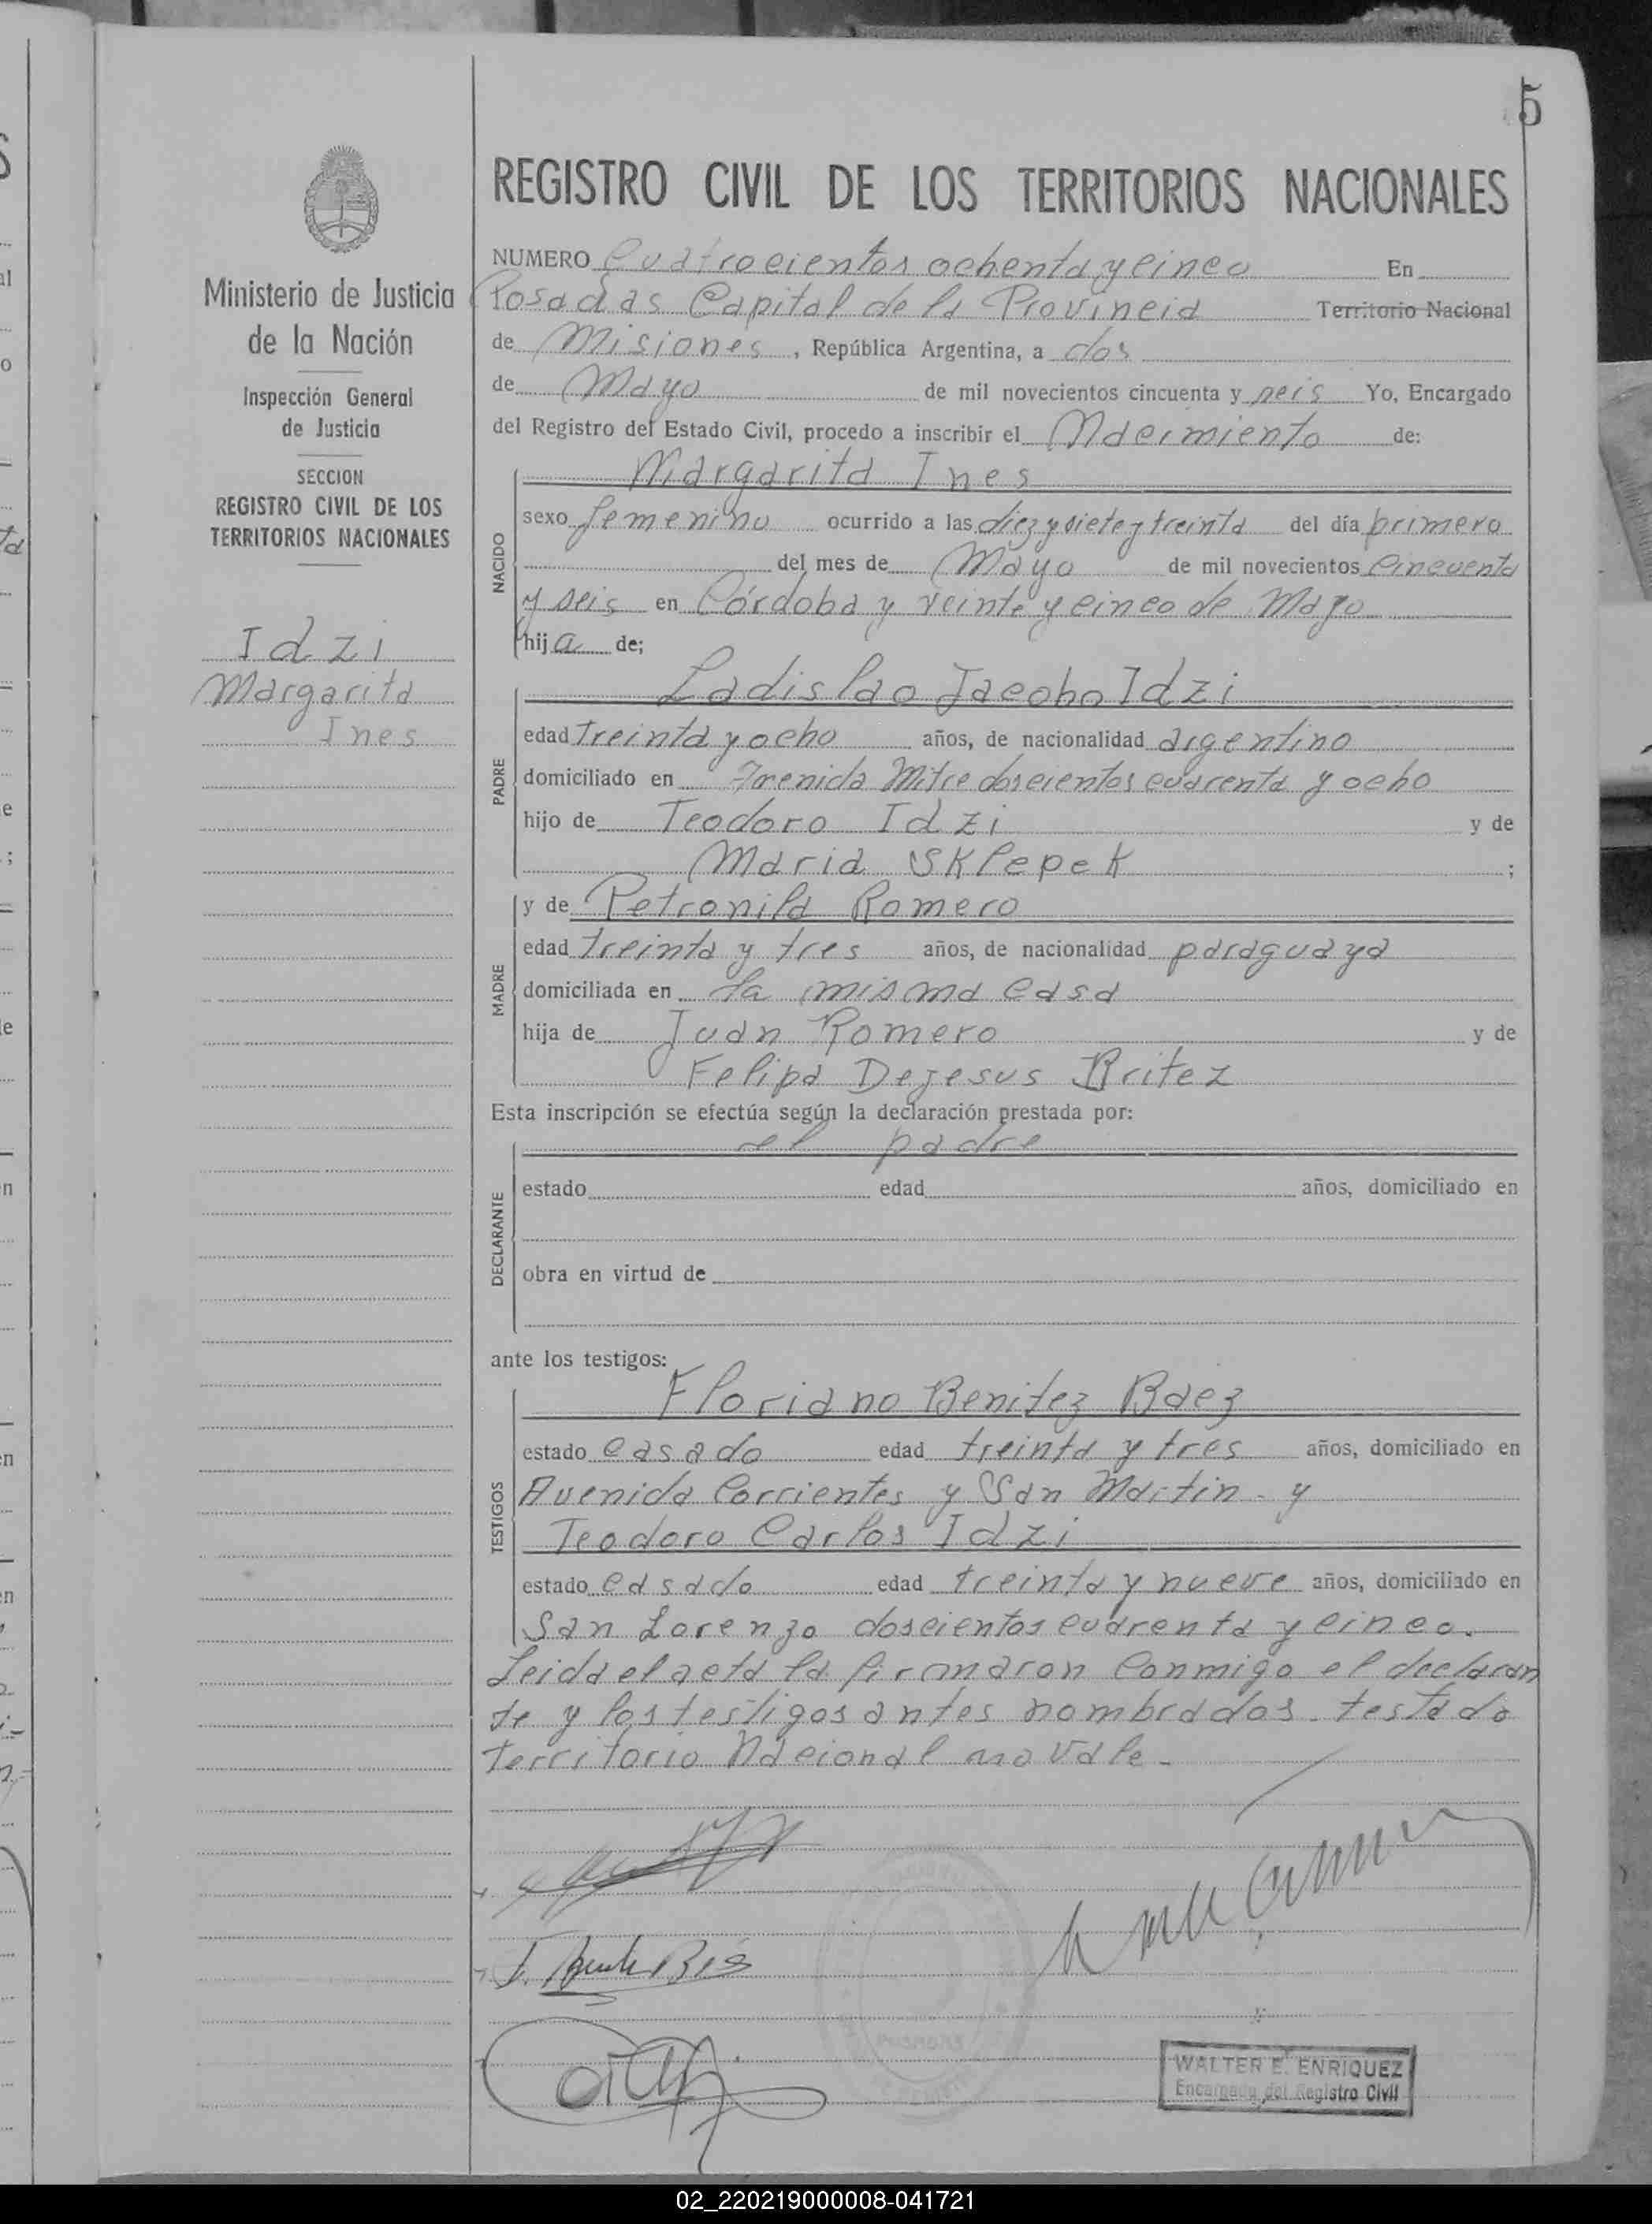 5
REGISTRO CIVIL DE LOS TERRITORIOS NACIONALES
Ministerio de Justicia
de la Nación
Inspección General
de Justicia
SECCION
REGISTRO CIVIL DE LOS
TERRITORIOS NACIONALES
Idzi
Margarita
Ines
NUMERO Cuatrocientos ochenta y cinco En
Posadas Capital de la Provincia Territorio Nacional
de Misiones, República Argentina, a dos
de Mayo de mil novecientos cincuenta y seis Yo, Encargado
del Registro del Estado Civil, procedo a inscribir el Nacimiento de:
NACIDO
Margarita Ines
sexo femenino ocurrido a las diez y siete y treinta del día primero
del mes de Mayo de mil novecientos cincuenta
y seis en Córdoba y veinte y cinco de Mayo
hija de;
PADRE
Ladislao Jacobo Idzi
edad treinta y ocho años, de nacionalidad argentino
domiciliado en Avenida Mitre doscientos cuarenta y ocho
hijo de Teodoro Idzi y de
Maria Sklepek ;
MADRE
y de Petronila Romero
edad treinta y tres años, de nacionalidad paraguaya
domiciliada en la misma casa
hija de Juan Romero y de
Felipa Dejesus Britez
Esta inscripción se efectúa según la declaración prestada por:
DECLARANTE
el padre
estado edad años, domiciliado en
obra en virtud de
ante los testigos:
TESTIGOS
Floriano Benitez Baez
estado casado edad treinta y tres años, domiciliado en
Avenida Corrientes y San Martin - y
Teodoro Carlos Idzi
estado casado edad treinta y nueve años, domiciliado en
San Lorenzo doscientos cuarenta y cinco.
Leida el acta la firmaron conmigo el declaran
te y los testigos antes nombrados. testado
territorio Nacional no vale -
WALTER E. ENRIQUEZ
Encargado del Registro Civil
02_220219000008-041721